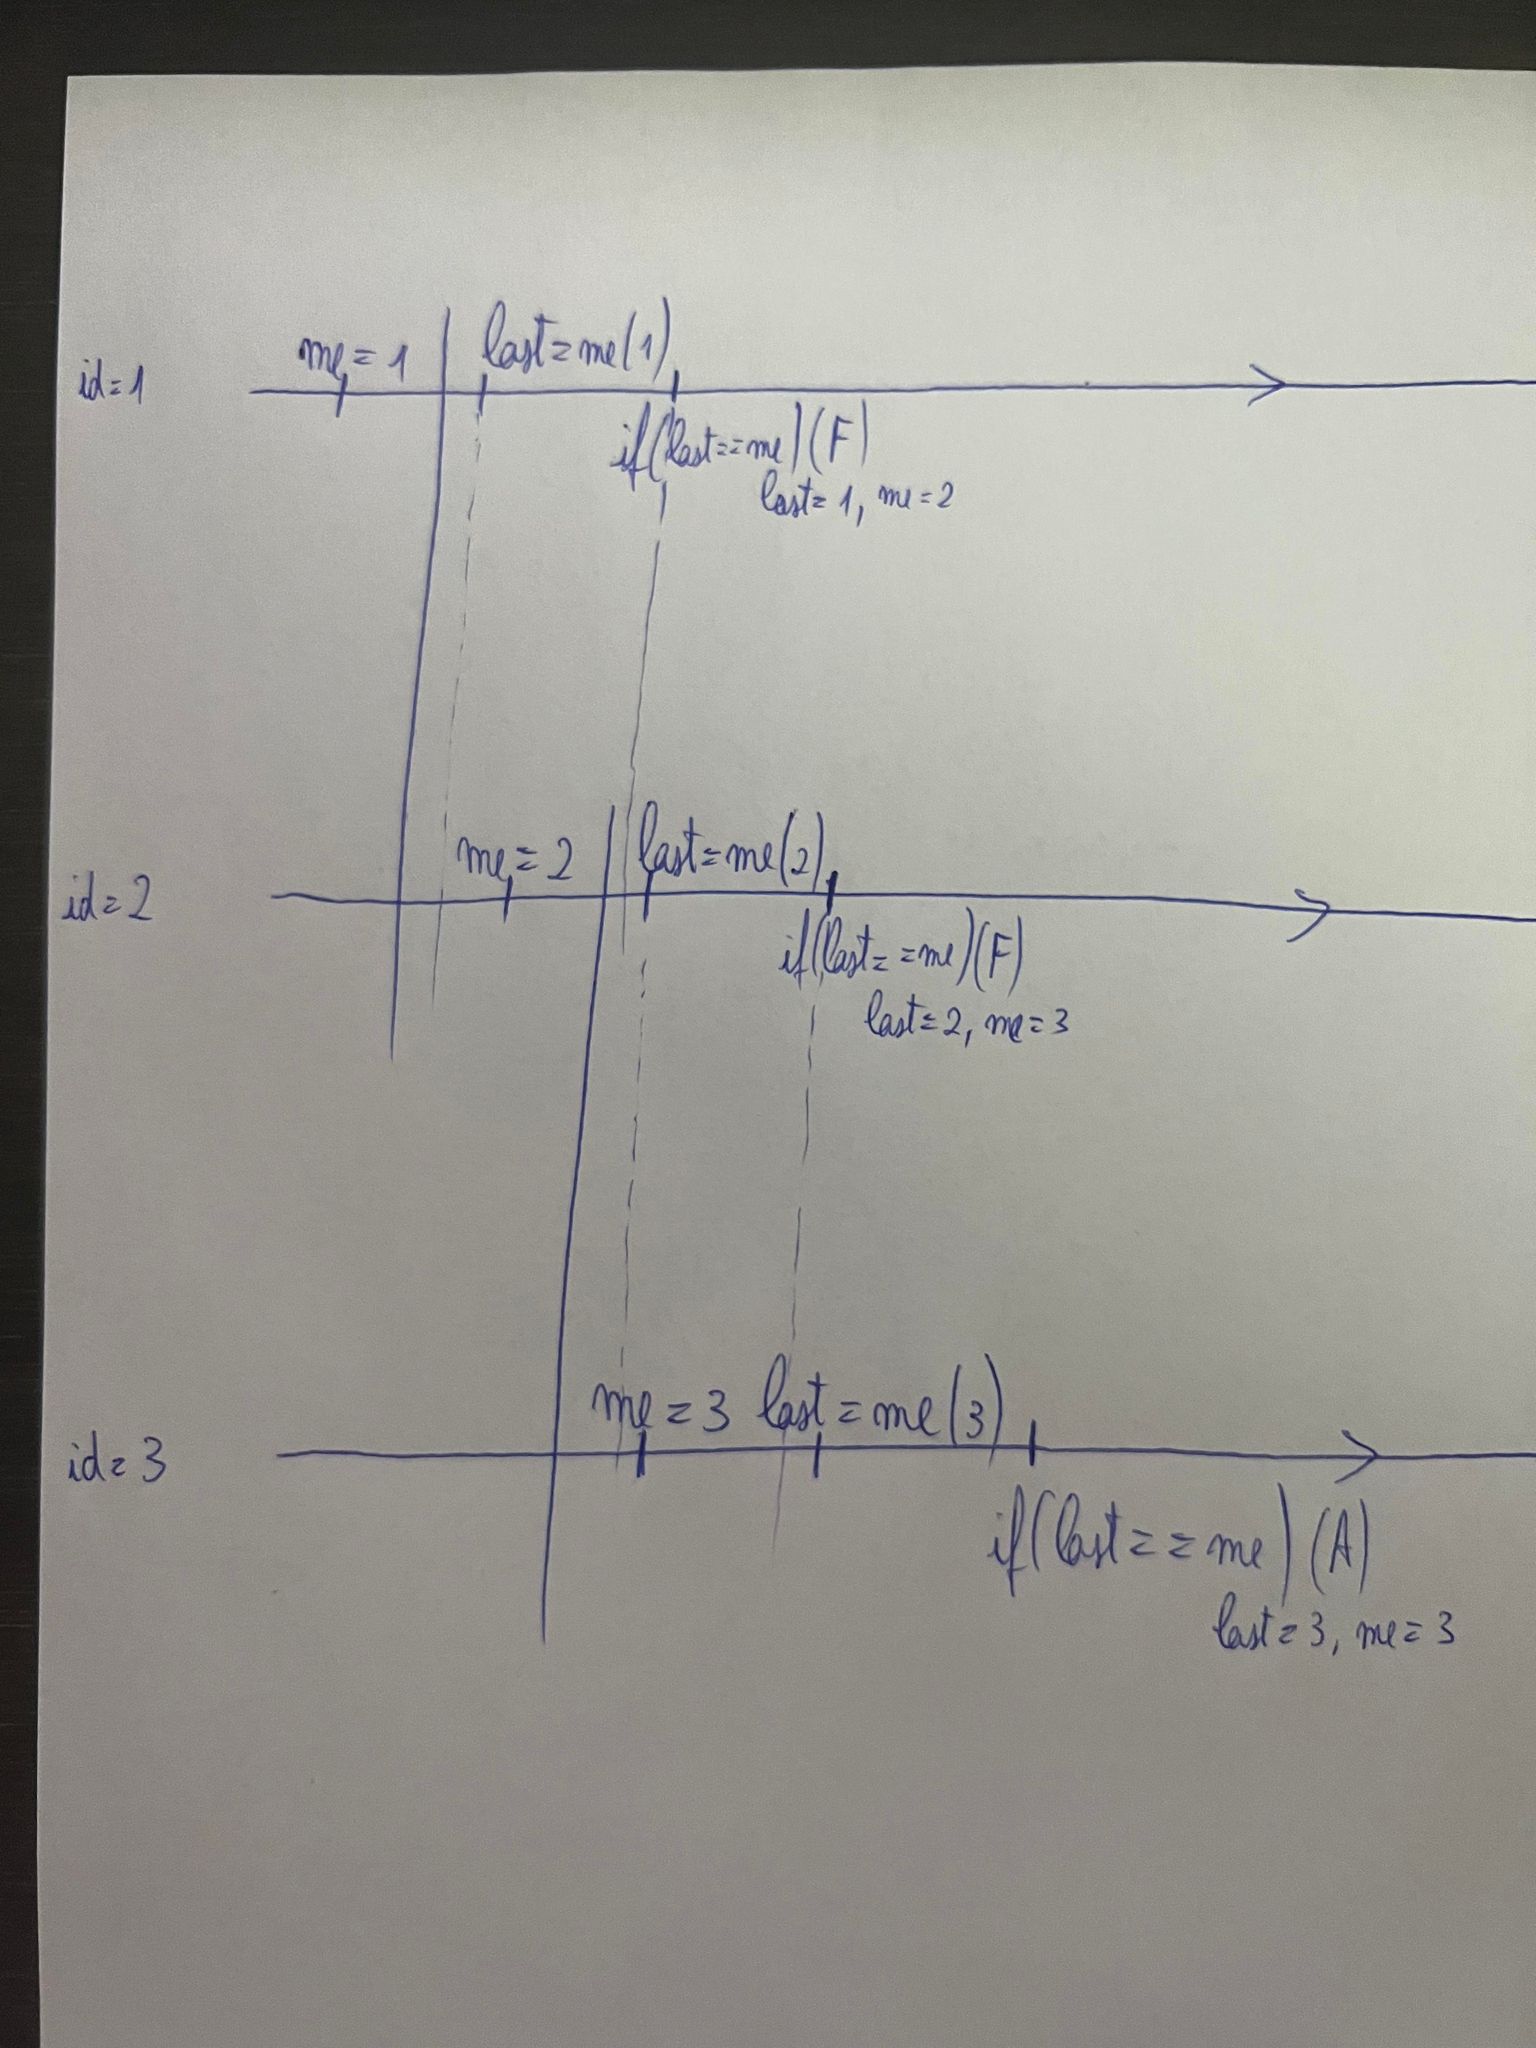 id=1
me=1 last=me(1)
if(last==me)(F)
last=1, me=2
id=2
me=2 last=me(2)
if(last==me)(F)
last=2, me=3
id=3
me=3 last=me(3)
if(last==me)(A)
last=3, me=3